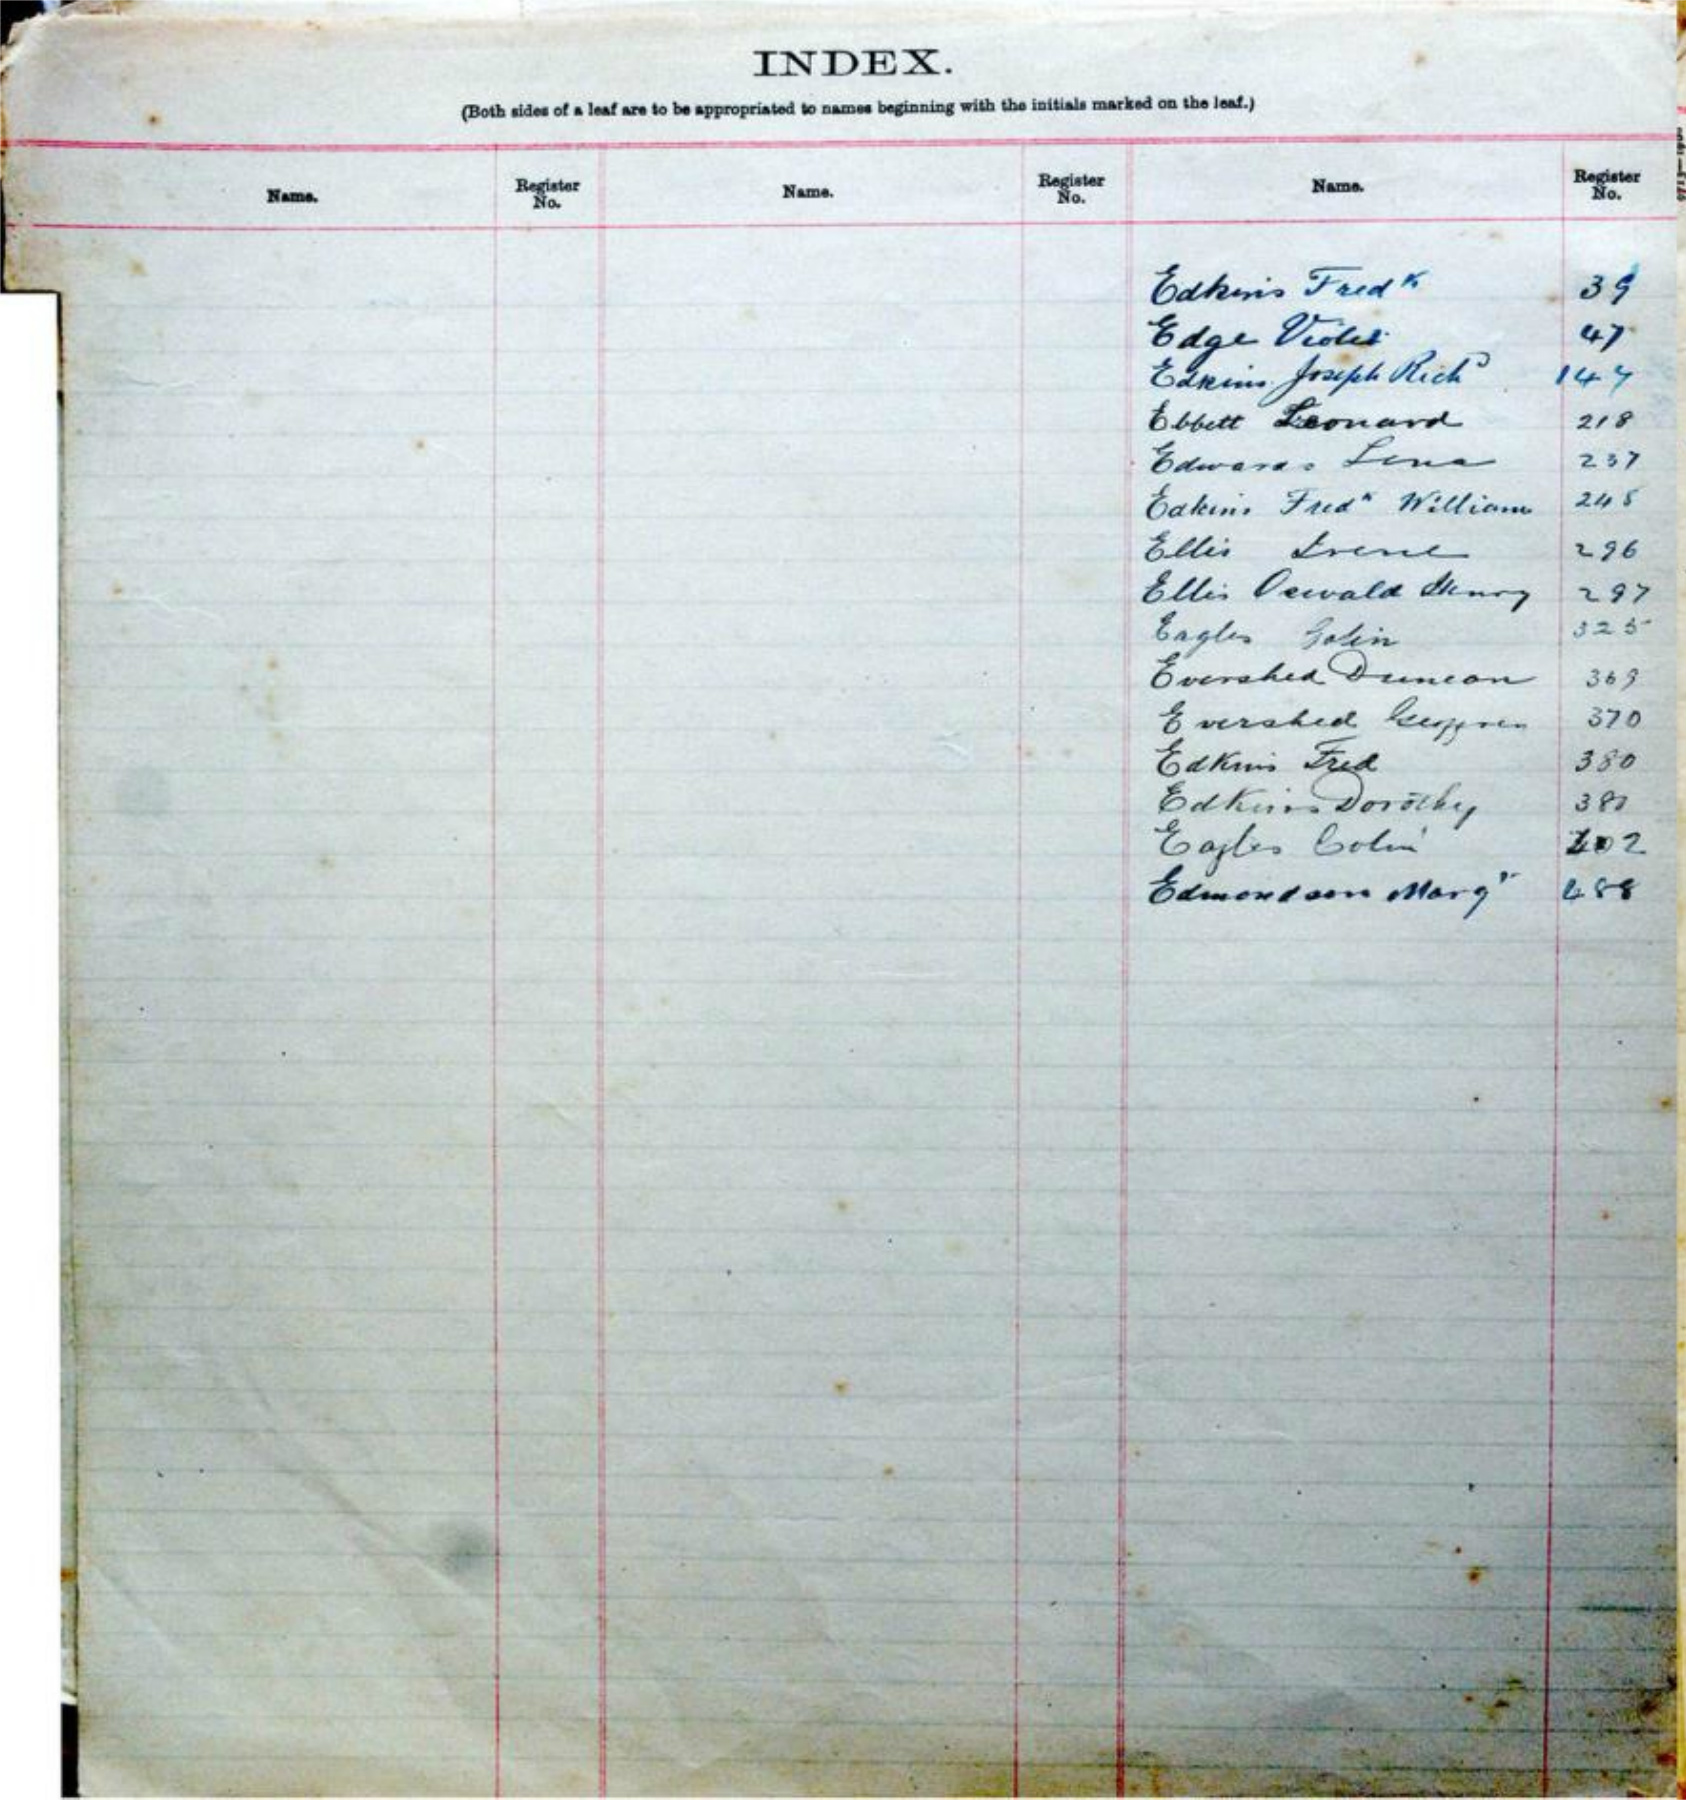 INDEX.
(Both sides of a leaf are to be appropriated to names beginning with the initials marked on the leaf.)
Name. Register No. Name. Register No. Name. Register No.
Edkins Fredk 39
Edge Violet 47
Edkins Joseph Richd 147
Ebbett Leonard 218
Edwards Lena 237
Edkins Fredk William 245
Ellis Irene 296
Ellis Oswald Henry 297
Eagles Colin 325
Evershed Duncan 369
Evershed 370
Edkins Fred 380
Edkins Dorothy 381
Eagles Colin 402
Edmondson Margt 488